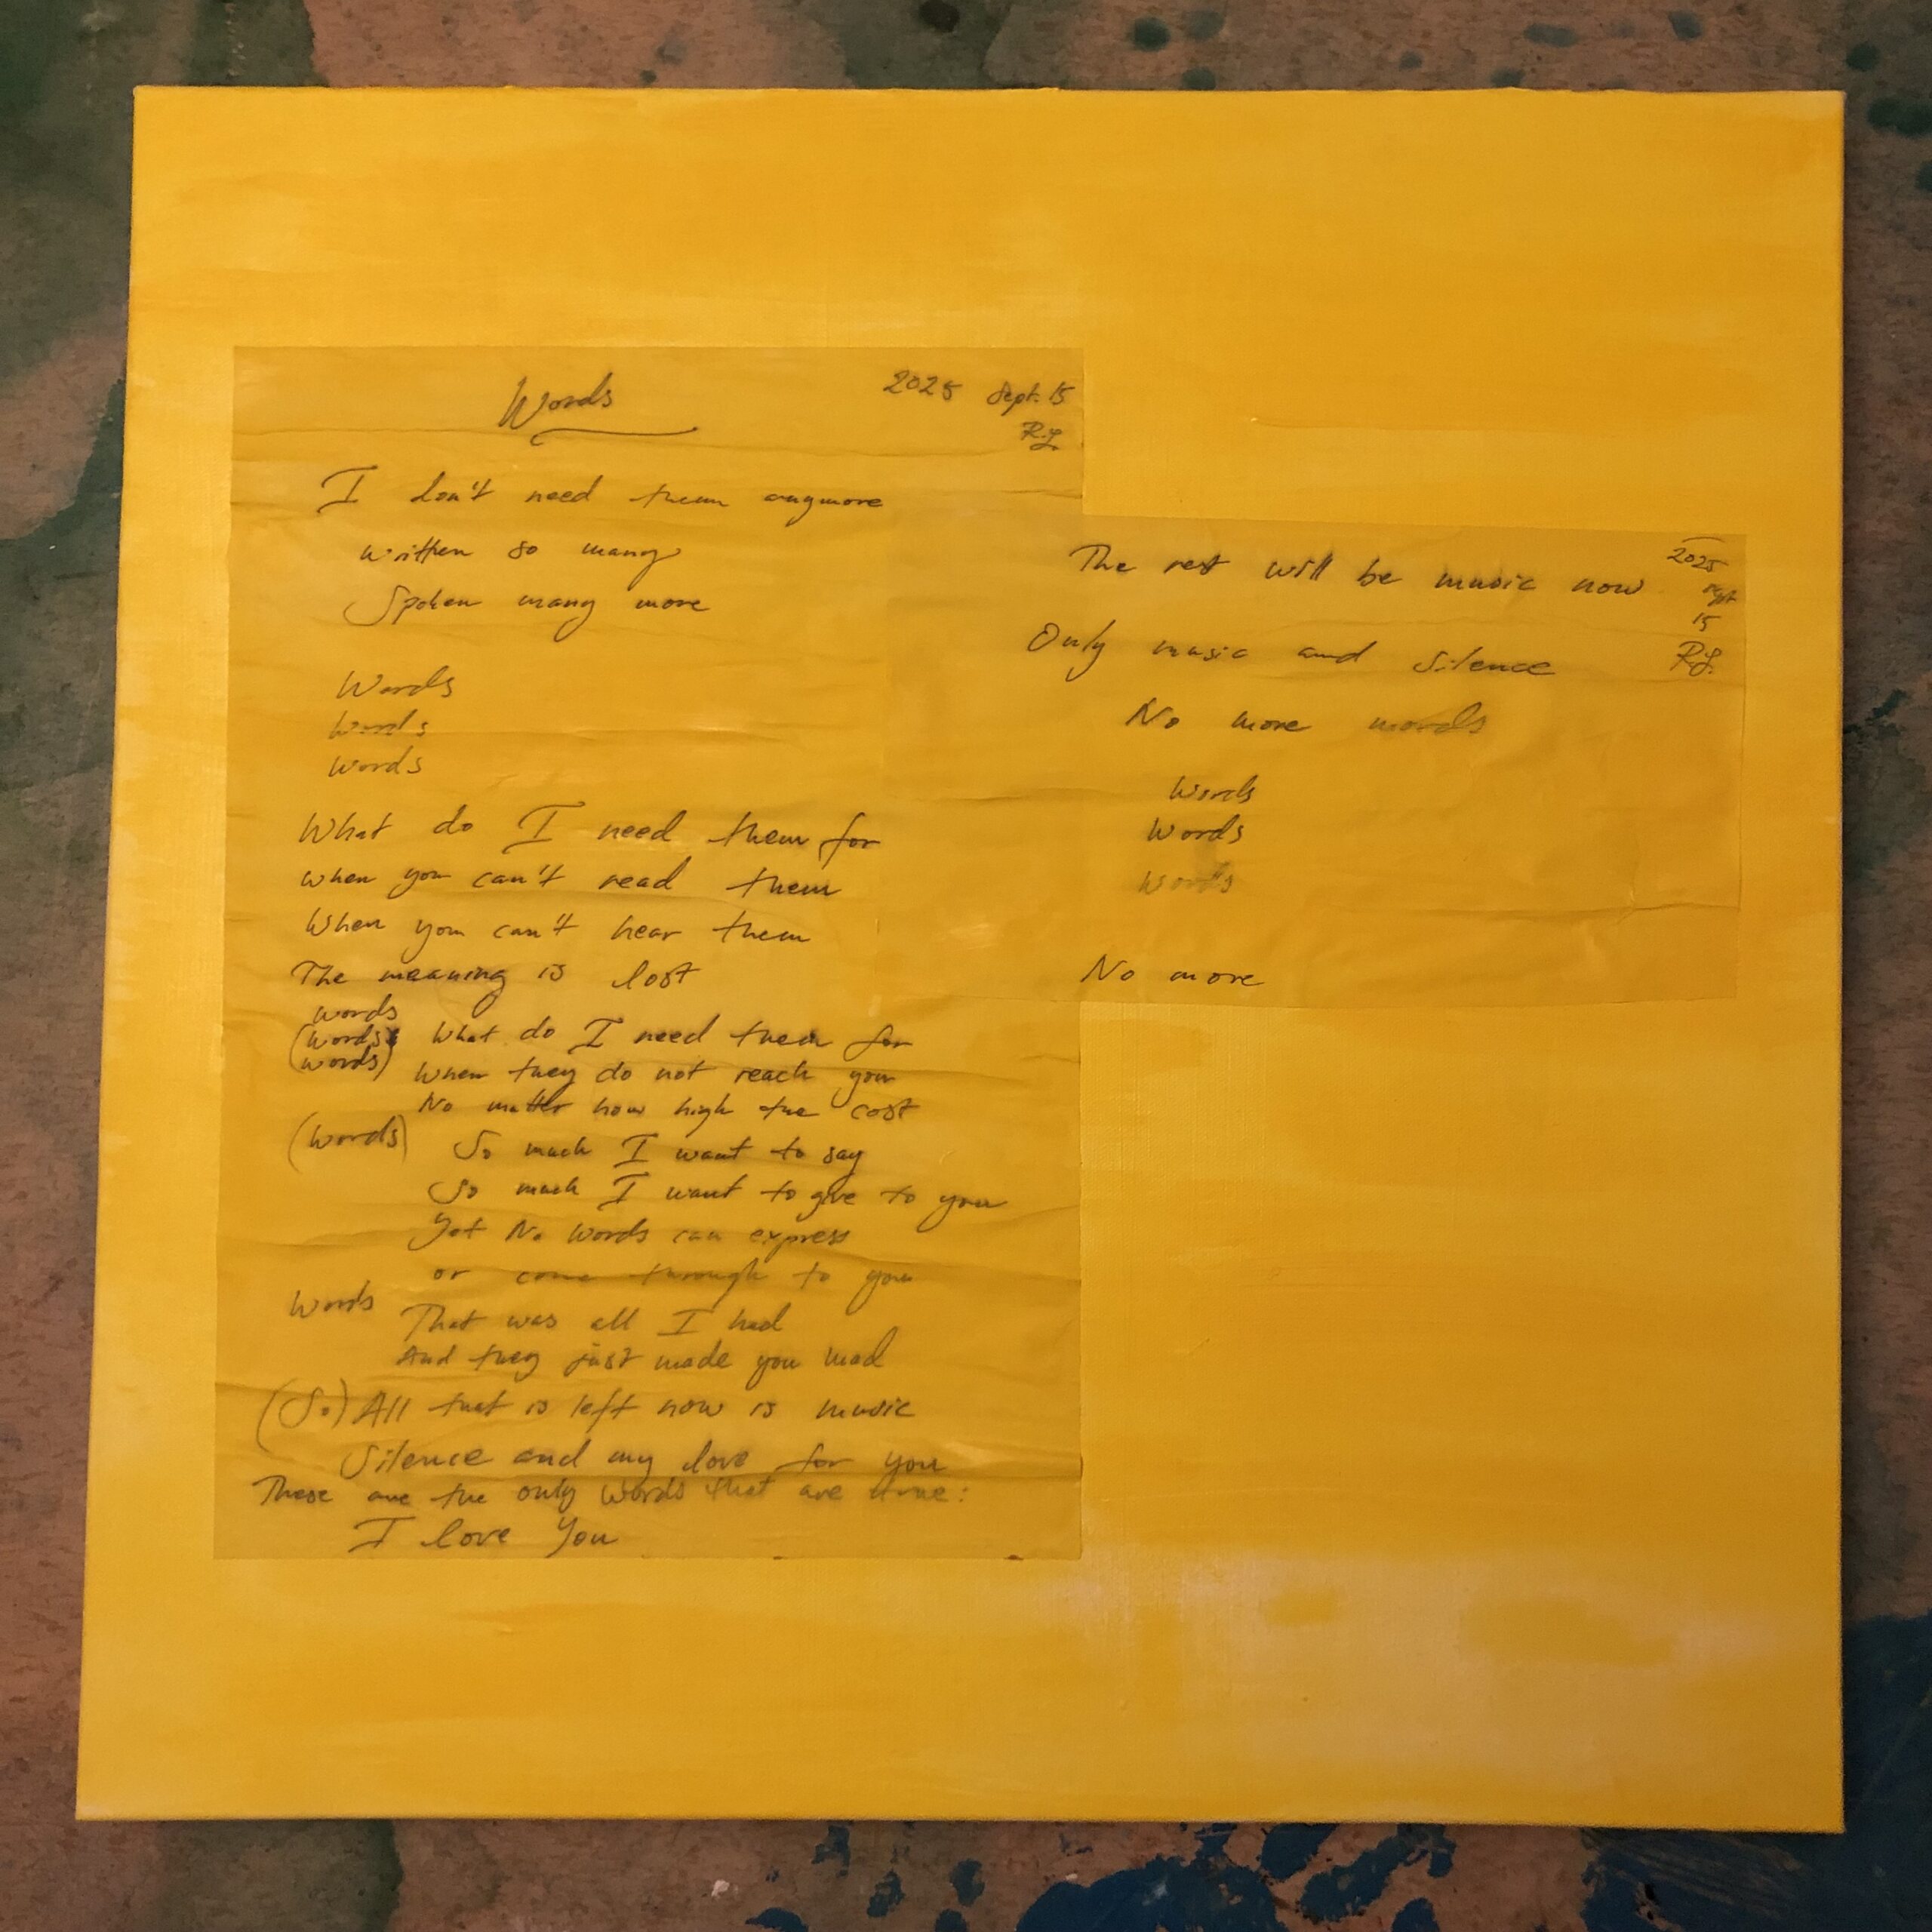 Words
2025 Sept. 15
R.J.
I don't need them anymore
written so many
Spoken many more
Words
Words
Words
What do I need them for
when you can't read them
When you can't hear them
The meaning is lost
words
(words
words)
What do I need them for
When they do not reach you
No matter how high the cost
(words)
So much I want to say
So much I want to give to you
Yet No words can express
or come through to you
Words
That was all I had
And they just made you mad
(So) All that is left now is music
Silence and my love for you
These are the only words that are true:
I love You
The rest will be music now
2025
Sept
15
R.J.
Only music and Silence
No more words
Words
Words
Words
No more